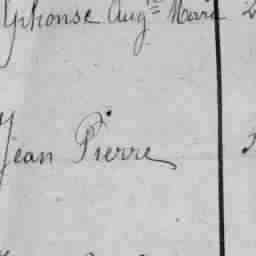 Alphonse Augne Marie
Jean Pierre